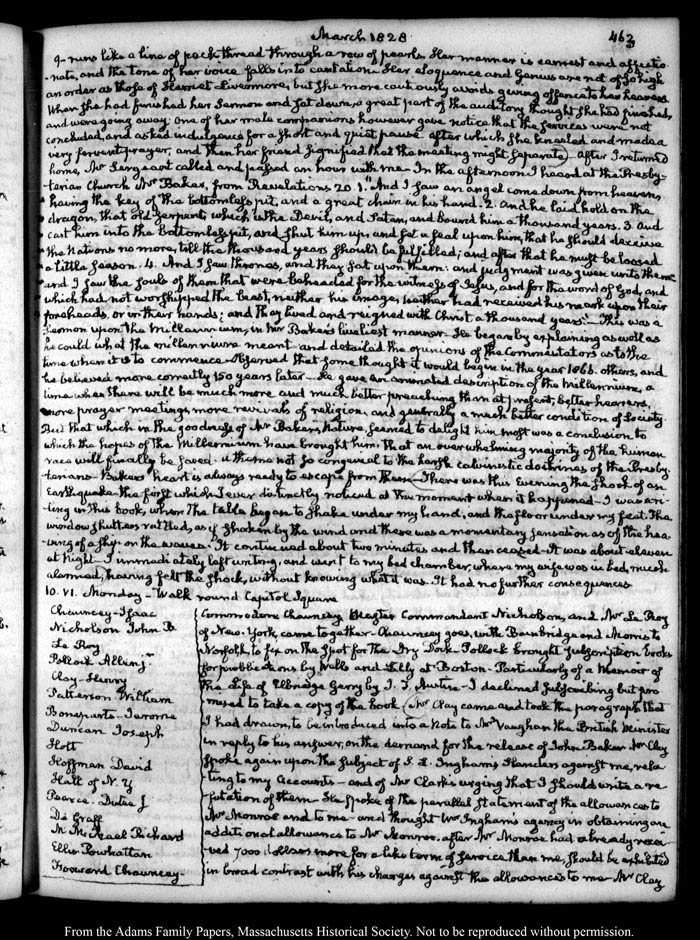 March 1828
463
9- runs like a line of pack-thread through a row of pearls. Her manner is earnest and affectio-
-nate, and the tone of her voice falls into cantation. Her eloquence and Genius are not of so high
an order as those of Harriet Livermore, but she more cautiously avoids giving offence to her hearers
When she had finished her Sermon and sat down, a great part of the auditory thought she had finished,
and were going away. One of her male companions however gave notice that the services were not
concluded, and asked indulgence for a short and quiet pause after which she kneeled and made a
very fervent prayer, and then her friend signified that the meeting might separate. After I returned
home, Mr Sergeant called and passed an hour with me. In the afternoon I heard at the Presby-
terian Church Mr Baker, from Revelations 20. 1. "And I saw an angel come down from heaven,
having the key of the bottomless pit, and a great chain in his hand. 2. And he laid hold on the
dragon, that old Serpent, which is the Devil, and Satan, and bound him a thousand years. 3. And
cast him into the bottomless pit, and shut him up, and set a seal upon him, that he should deceive
the Nations no more, till the thousand years should be fulfilled; and after that he must be loosed
a little season. 4. And I saw thrones, and they sat upon them: and judgment was given unto them:
and I saw the souls of them that were beheaded for the witness of Jesus, and for the word of God, and
which had not worshipped the beast, neither his image, neither had received his mark upon their
foreheads, or in their hands; and they lived and reigned with Christ a thousand years." This was a
Sermon upon the Millennium, in Mr Baker's liveliest manner. He began by explaining as well as
he could what the millennium meant and detailed the opinions of the Commentators as to the
time when it is to commence. Observed that some thought it would begin in the year 1866. others, and
he believed more correctly 150 years later. He gave an animated description of the Millennium, a
time when there will be much more and much better preaching than at present; better hearers,
more prayer meetings, more revivals of religion, and generally a much better condition of Society.
But that which in the goodness of Mr Baker's Nature, seemed to delight him most was a conclusion to
which the hopes of the Millennium have brought him, that an overwhelming majority of the human
race will finally be saved. is not so congenial to the harsh calvinistic doctrines of the Presby-
terians Baker's heart is always ready to escape from them. There was this evening the shock of an
Earthquake the first which I ever distinctly noticed at the moment when it happened. I was wri-
ting in this book, when the table began to shake under my hand, and the floor under my feet. The
window shutters rattled, as if shaken by the wind and there was a momentary sensation as of the hea-
ving of a ship on the waves. It continued about two minutes and then ceased. It was about eleven
at Night. I immediately left writing, and went to my bed chamber, where my wife was in bed, much
alarmed, having felt the shock, without knowing what it was. It had no further consequences
10. VI. Monday - Walk round Capitol Square
Chauncey - Isaac
Nicholson John B.
Le Roy
Pollock Allinj
Clay - Henry
Patterson William
Bonaparte - Jerome
Duncan Joseph
Holt
Hoffman David
Hall of N. Y
Pearce. Dutee J
De Graff
McMichael Richard
Ellis Powhattan
Forward Chauncey
Commodore Chauncey Master Commandant Nicholson, and Mr Le Roy
of New-York, came together - Chauncey goes, with Bainbridge and Morris to
Norfolk, to fix on the Spot for the Dry Dock - Pollock brought subscription books
for publications by Wells and Lilly at Boston - Particularly of a Memoir of
the Life of Elbridge Gerry by J. T. Austin - I declined subscribing but pro-
mised to take a copy of the book. Mr Clay came and took the paragraph that
I had drawn, to be introduced into a Note to Mr Vaughan the British Minister
in reply to his answer, on the demand for the release of John Baker. Mr Clay
spoke again upon the subject of S. D. Ingham's Slanders against me, rela-
ting to my Accounts - and of Mr Clarke urging that I should write a re-
futation of them. He spoke of the parallel statement of the allowances to
Mr Monroe and to me - and thought Mr Ingham's agency in obtaining an
additional allowance to Mr Monroe, after Mr Monroe had already recei-
-ved 7000 dollars more for a like term of service than me, should be exhibited
in broad contrast with his charges against the allowances to me. Mr Clay
From the Adams Family Papers, Massachusetts Historical Society. Not to be reproduced without permission.